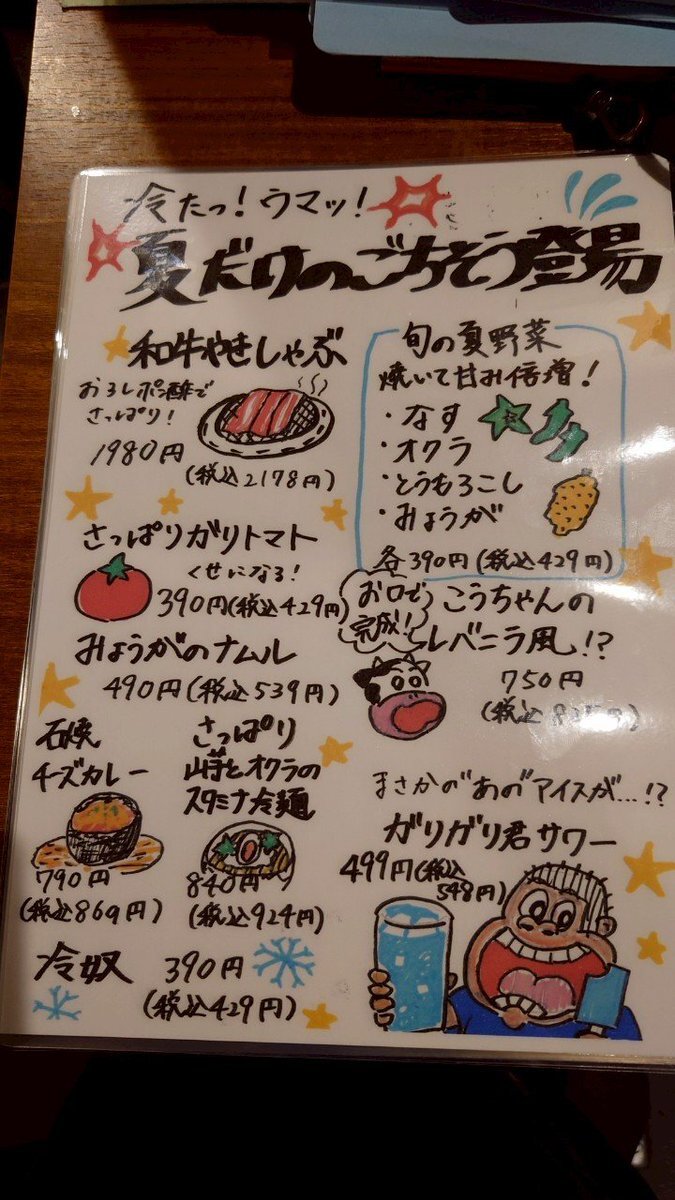 冷たっ!ウマッ!
夏だけのごちそう登場
和牛やきしゃぶ
おろしポン酢で
さっぱり!
1980円
(税込2178円)
旬の夏野菜
焼いて甘み倍増!
・なす
・オクラ
・とうもろこし
・みょうが
各390円(税込429円)
さっぱりガリトマト
くせになる!
390円(税込429円)
お口で
完成!
こうちゃんの
レバニラ風!?
750円
(税込
みょうがのナムル
490円(税込539円)
石焼
チーズカレー
790円
(税込869円)
さっぱり
山芋とオクラの
スタミナ冷麺
840円
(税込924円)
まさかの"あの"アイスが…!?
ガリガリ君サワー
499円(税込
548円)
冷奴 390円
(税込429円)